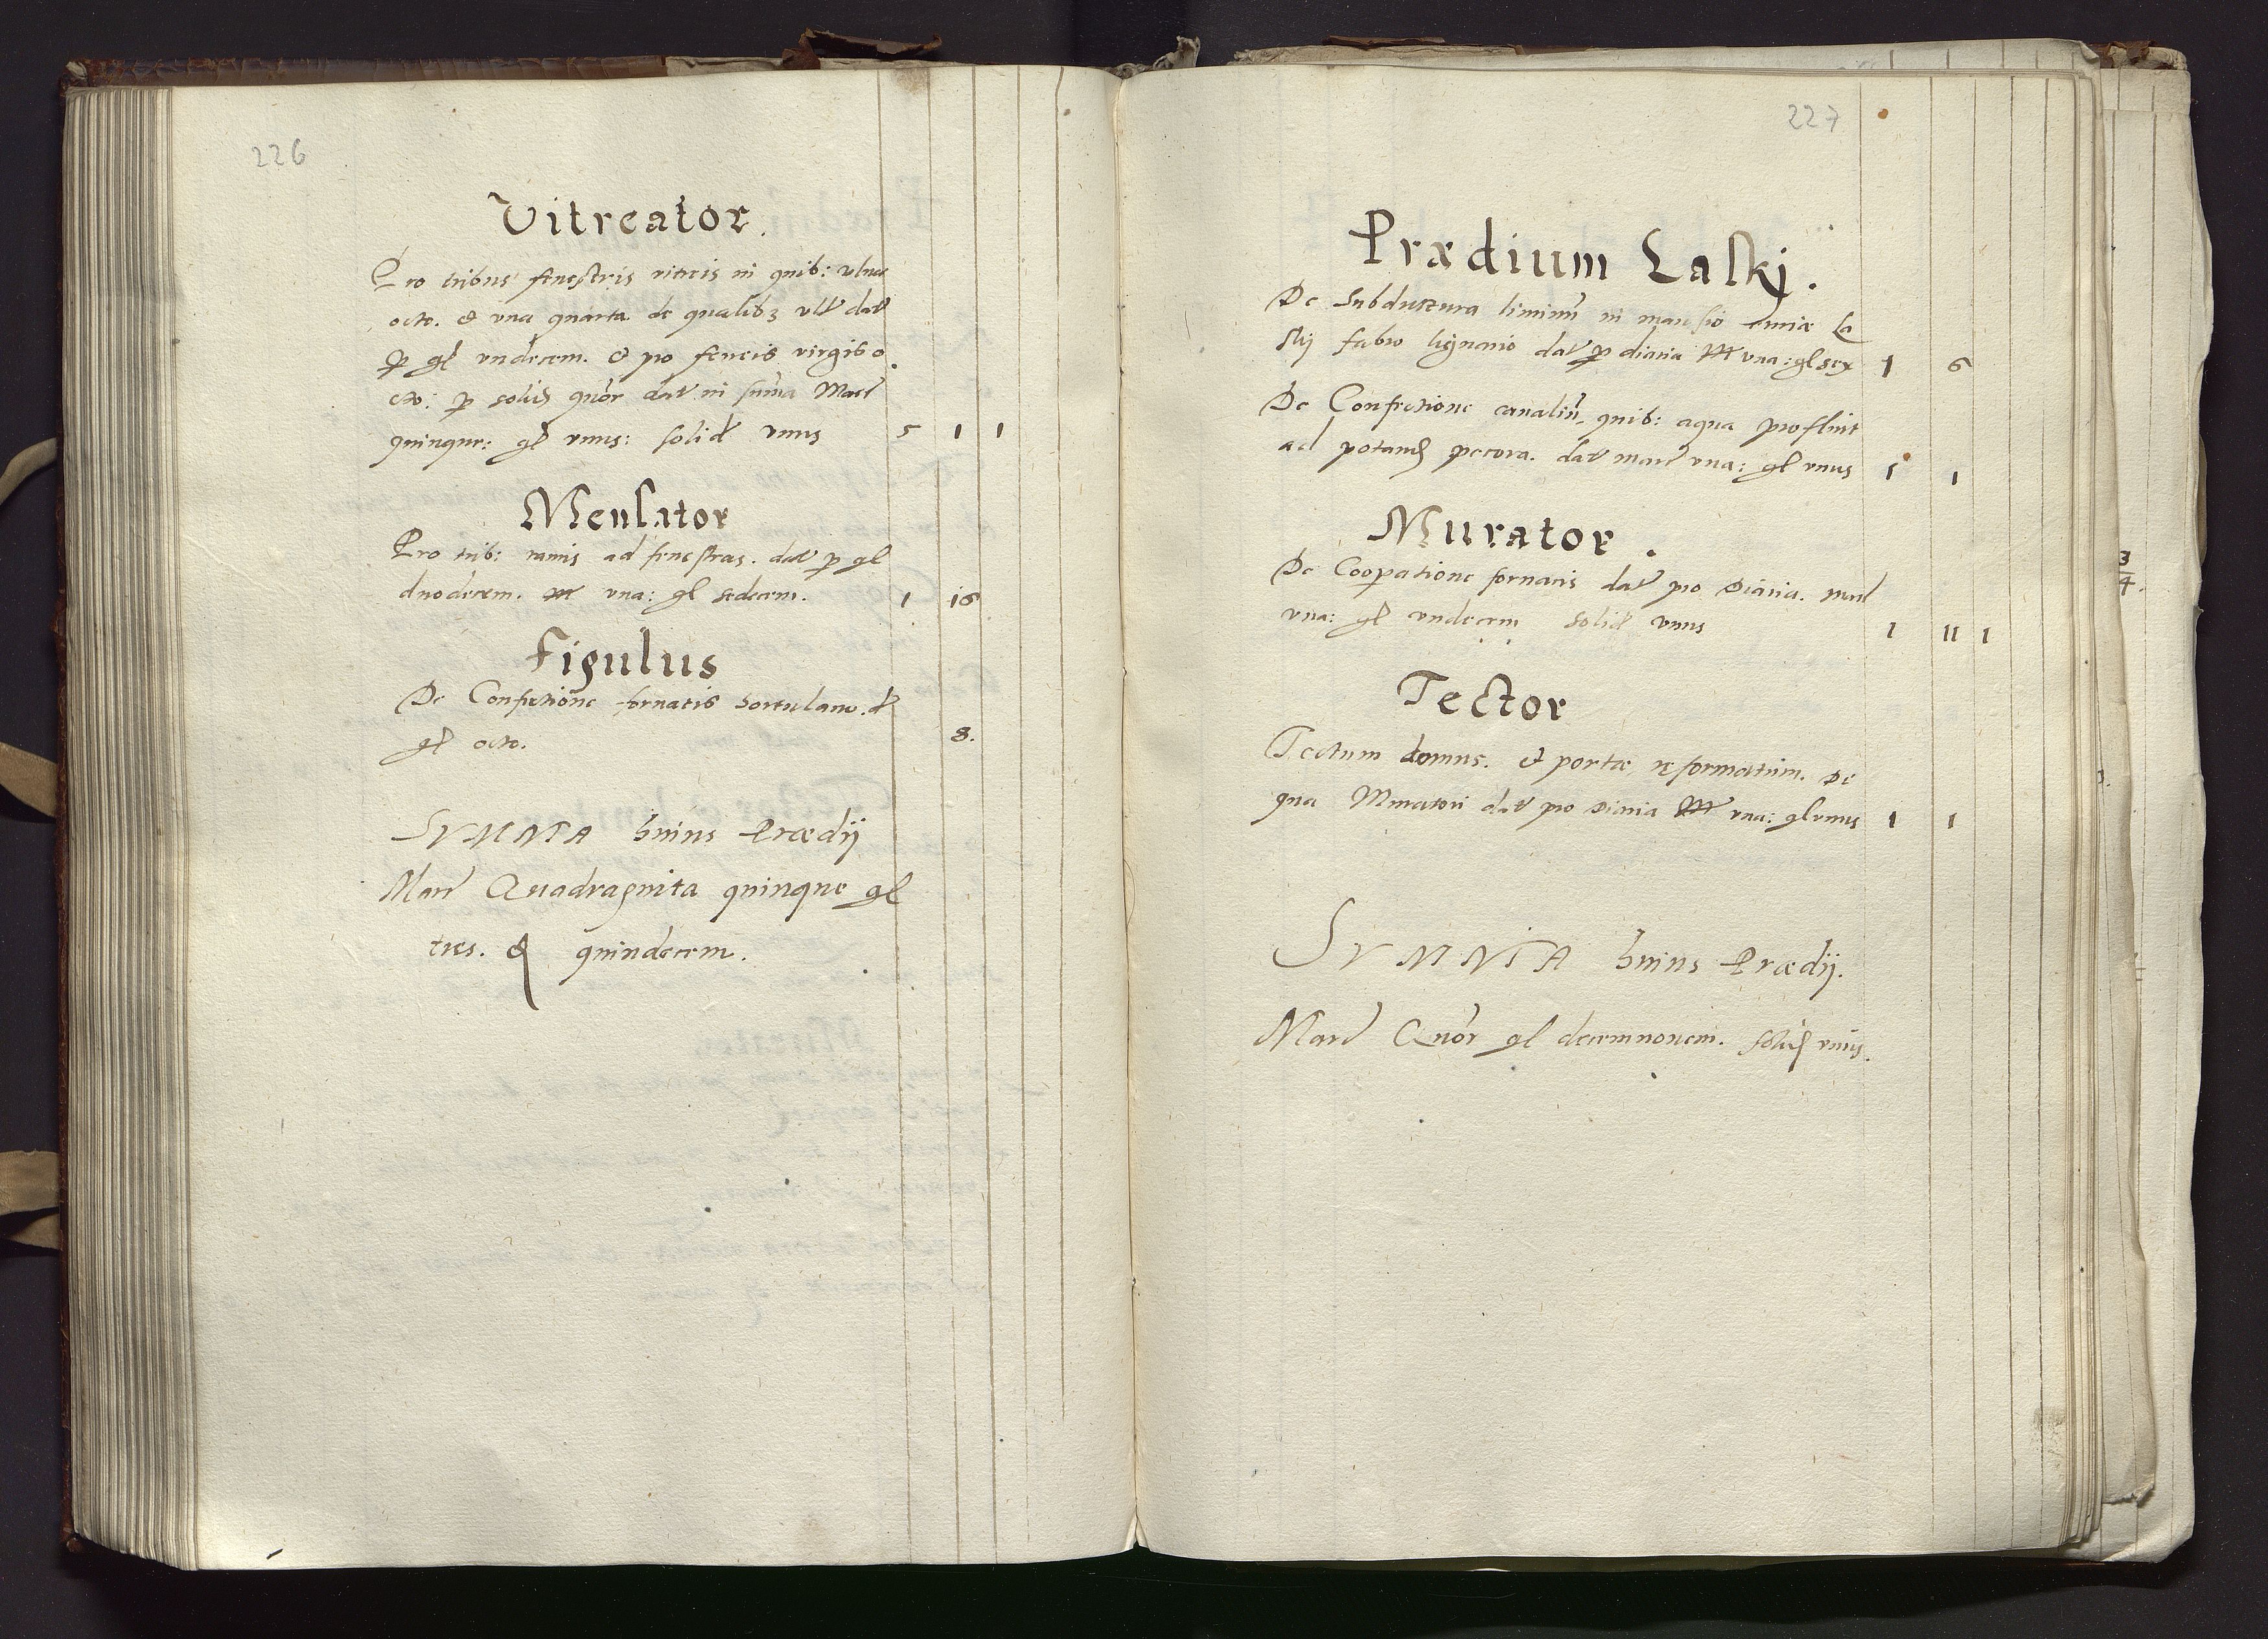 226
Vitreator.
Pro tribus fenestris vitreis in quib: vlnae
octo. et vna quarta de qualibz vlt dat
p gl vndecem. et pro ferreis virgis o
cto: p solid quor dat in suma Marc
quinque: gl vnus: solid vnus 5 1 1
Mensator
Pro trib: ramis ad fenestras. dat p gl
duodecem. M vna: gl sedecem. 1 16
Figulus
De Confectione fornacis hortulano. d
gl octo. 8.
SVMMA huius Prædij
Marc Quadraginta quinque gl
tres. & quindecem.
227
Prædium Laski.
De Subductura liminu in mansio curiæ La
skij fabro lignario dat p diaria M vna: gl sex 1 6
De Confectione canaliu, quib: aqua profluit
ad potand pecora. dat marc vna: gl vnus 1 1
Murator.
De Coopatione fornacis dat pro Diaria. marc
vna: gl vndecem solid vnus 1 11 1
Tector
Tectum domus. et portæ reformatum. De
qua Muratori dat pro Diaria M vna: gl vnus 1 1
SVMMA huius Prædij.
Marc Quor gl decemnouem. solid vnus.
3
4.